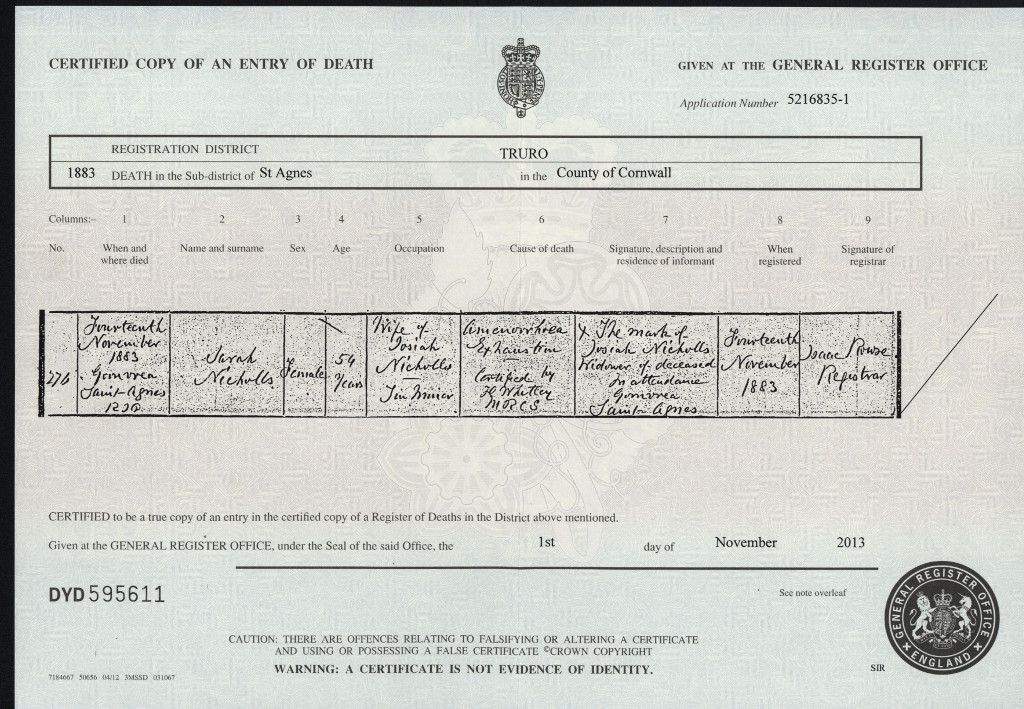 CERTIFIED COPY OF AN ENTRY OF DEATH
GIVEN AT THE GENERAL REGISTER OFFICE
Application Number 5216835-1
REGISTRATION DISTRICT TRURO
1883 DEATH in the Sub-district of St Agnes in the County of Cornwall
Columns:- 1 2 3 4 5 6 7 8 9
No. When and where died Name and surname Sex Age Occupation Cause of death Signature, description and residence of informant When registered Signature of registrar
276
Fourteenth
November
1883
Gonvrea
Saint Agnes
RSD
Sarah
Nicholls
Female
54
Years
Wife of
Josiah
Nicholls
Tin Miner
Amenorrhoea
Exhaustion
Certified by
H Whitley
MRCS
X The mark of
Josiah Nicholls
Widower of deceased
In attendance
Gonvrea
Saint Agnes
Fourteenth
November
1883
Isaac Prowse
Registrar
CERTIFIED to be a true copy of an entry in the certified copy of a Register of Deaths in the District above mentioned.
Given at the GENERAL REGISTER OFFICE, under the Seal of the said Office, the 1st day of November 2013
DYD 595611
See note overleaf
CAUTION: THERE ARE OFFENCES RELATING TO FALSIFYING OR ALTERING A CERTIFICATE
AND USING OR POSSESSING A FALSE CERTIFICATE ©CROWN COPYRIGHT
WARNING: A CERTIFICATE IS NOT EVIDENCE OF IDENTITY.
GENERAL REGISTER OFFICE
ENGLAND
SIR
7184667 50656 04/12 3MSSD 031067